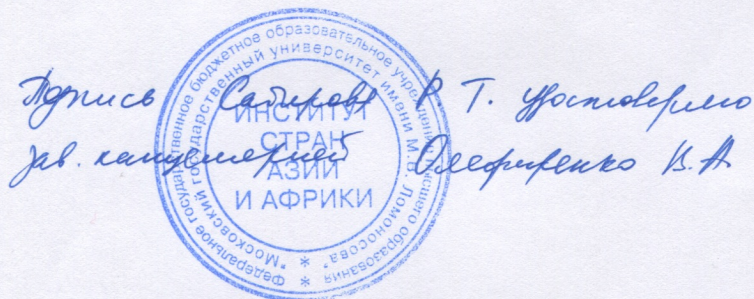 Подпись Сабирова Р. Т. удостоверяю
Зав. канцелярией Олефиренко В. А.
Федеральное государственное бюджетное образовательное учреждение высшего образования
"Московский государственный университет имени М.В. Ломоносова"
ИНСТИТУТ
СТРАН
АЗИИ
И АФРИКИ